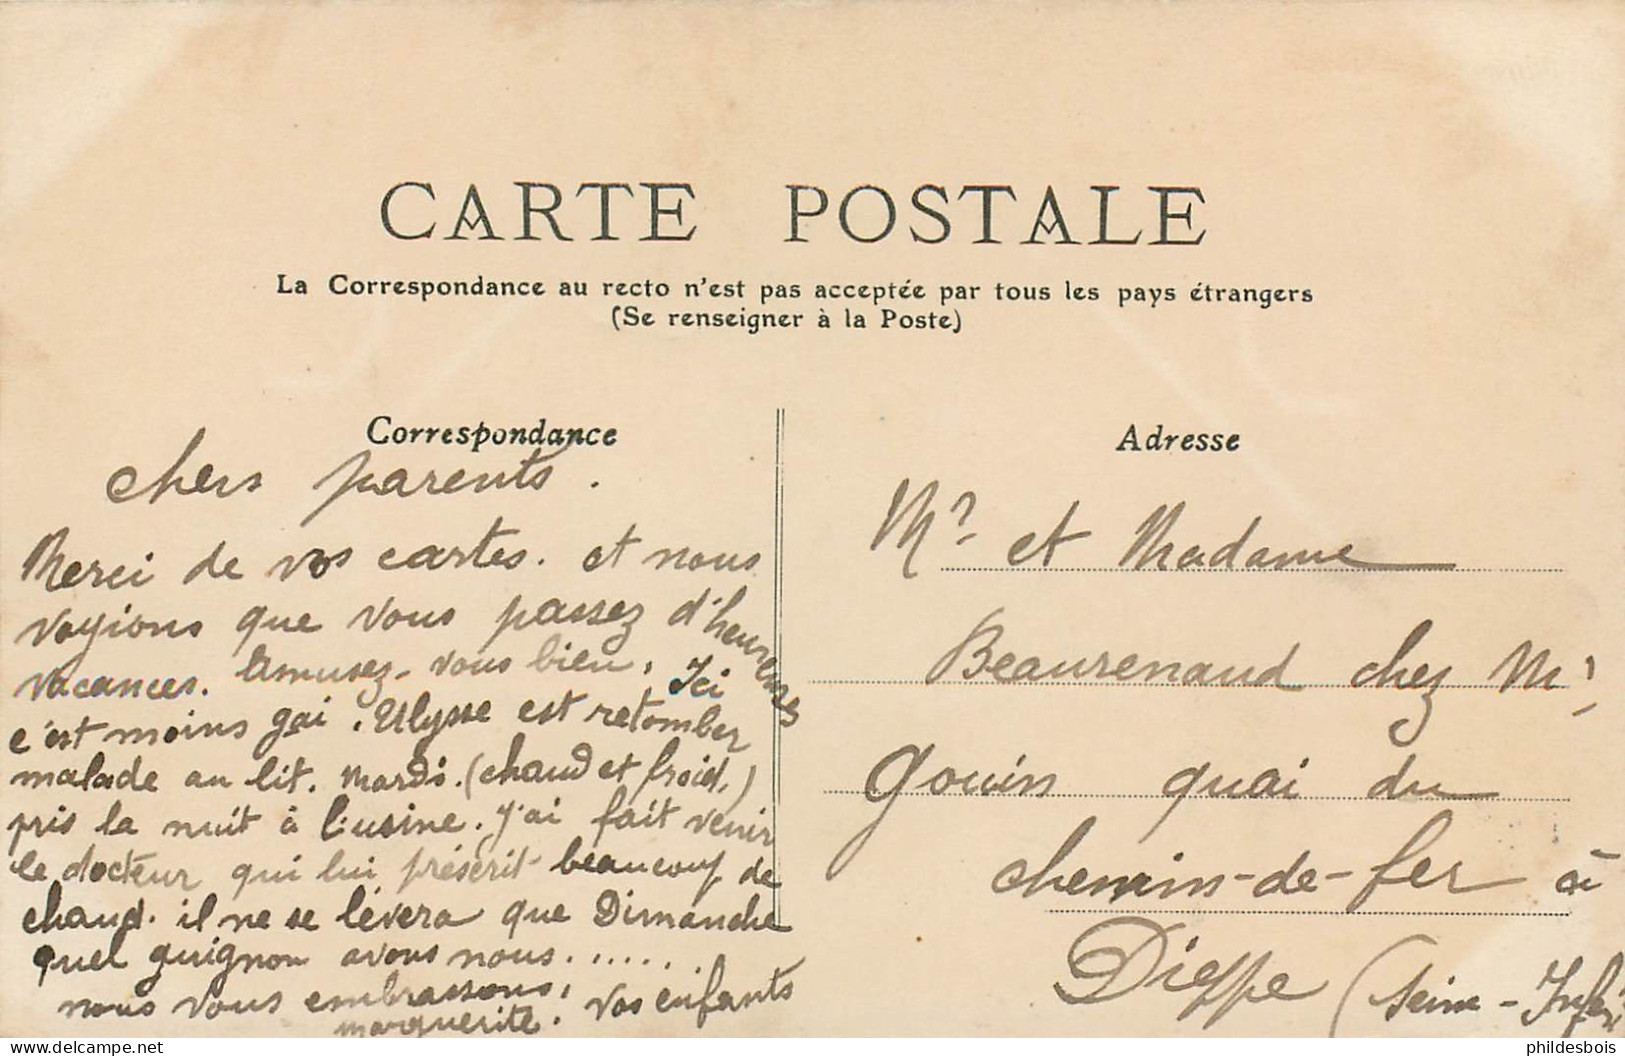 CARTE POSTALE
La Correspondance au recto n'est pas acceptée par tous les pays étrangers
(Se renseigner à la Poste)
Correspondance
chers parents.
Merci de vos cartes. et nous
voyions que vous passez d'heureuses
vacances. Amusez-vous bien, Ici
c'est moins gai. Ulysse est retomber
malade au lit. Mardi. (chaud et froid.)
pris la nuit à l'usine. J'ai fait venir
le docteur qui lui préscrit beaucoup de
chaud. il ne se lèvera que Dimanche
quel guignon avons nous......
nous vous embrassons, Vos enfants
marguerite.
Adresse
Mr et Madame
Beaurenaud chez Mr
Gouin quai du
chemin-de-fer à
Dieppe (Seine-Infer
delcampe.net
phildesbois